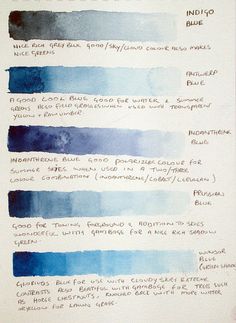 INDIGO
BLUE
NICE RICH GREY BLUE GOOD/SKY/CLOUD COLOUR ALSO MAKES
NICE GREENS
ANTWERP
BLUE
A GOOD COOL BLUE GOOD FOR WATER & SUMMER
GREENS ALSO FIELD GRASSES WHEN USED WITH TRANSPARENT
YELLOW + RAW UMBER
INDANTHRENE
BLUE
INDANTHRENE BLUE GOOD COLOUR FOR
SUMMER SKIES WHEN USED IN A TWO/THREE
COLOUR COMBINATION (INDANTHRENE/COBALT/CERULEAN)
PRUSSIAN
BLUE
GOOD FOR TONING FORGROUND & ADDITION TO SKIES
WONDERFUL WITH GAMBOGE FOR A NICE RICH SHADOW
GREEN
WINSOR
BLUE
(GREEN SHADE)
GLORIOUS BLUE FOR USE WITH CLOUDY SKIES EXTREME
CONTRASTS ALSO BEATIFUL WITH GAMBOGE FOR TREES SUCH
AS HORSE CHESTNUTS. KNOCKED BACK WITH MORE WATER
OR YELLOW FOR LAWNS GRASS.